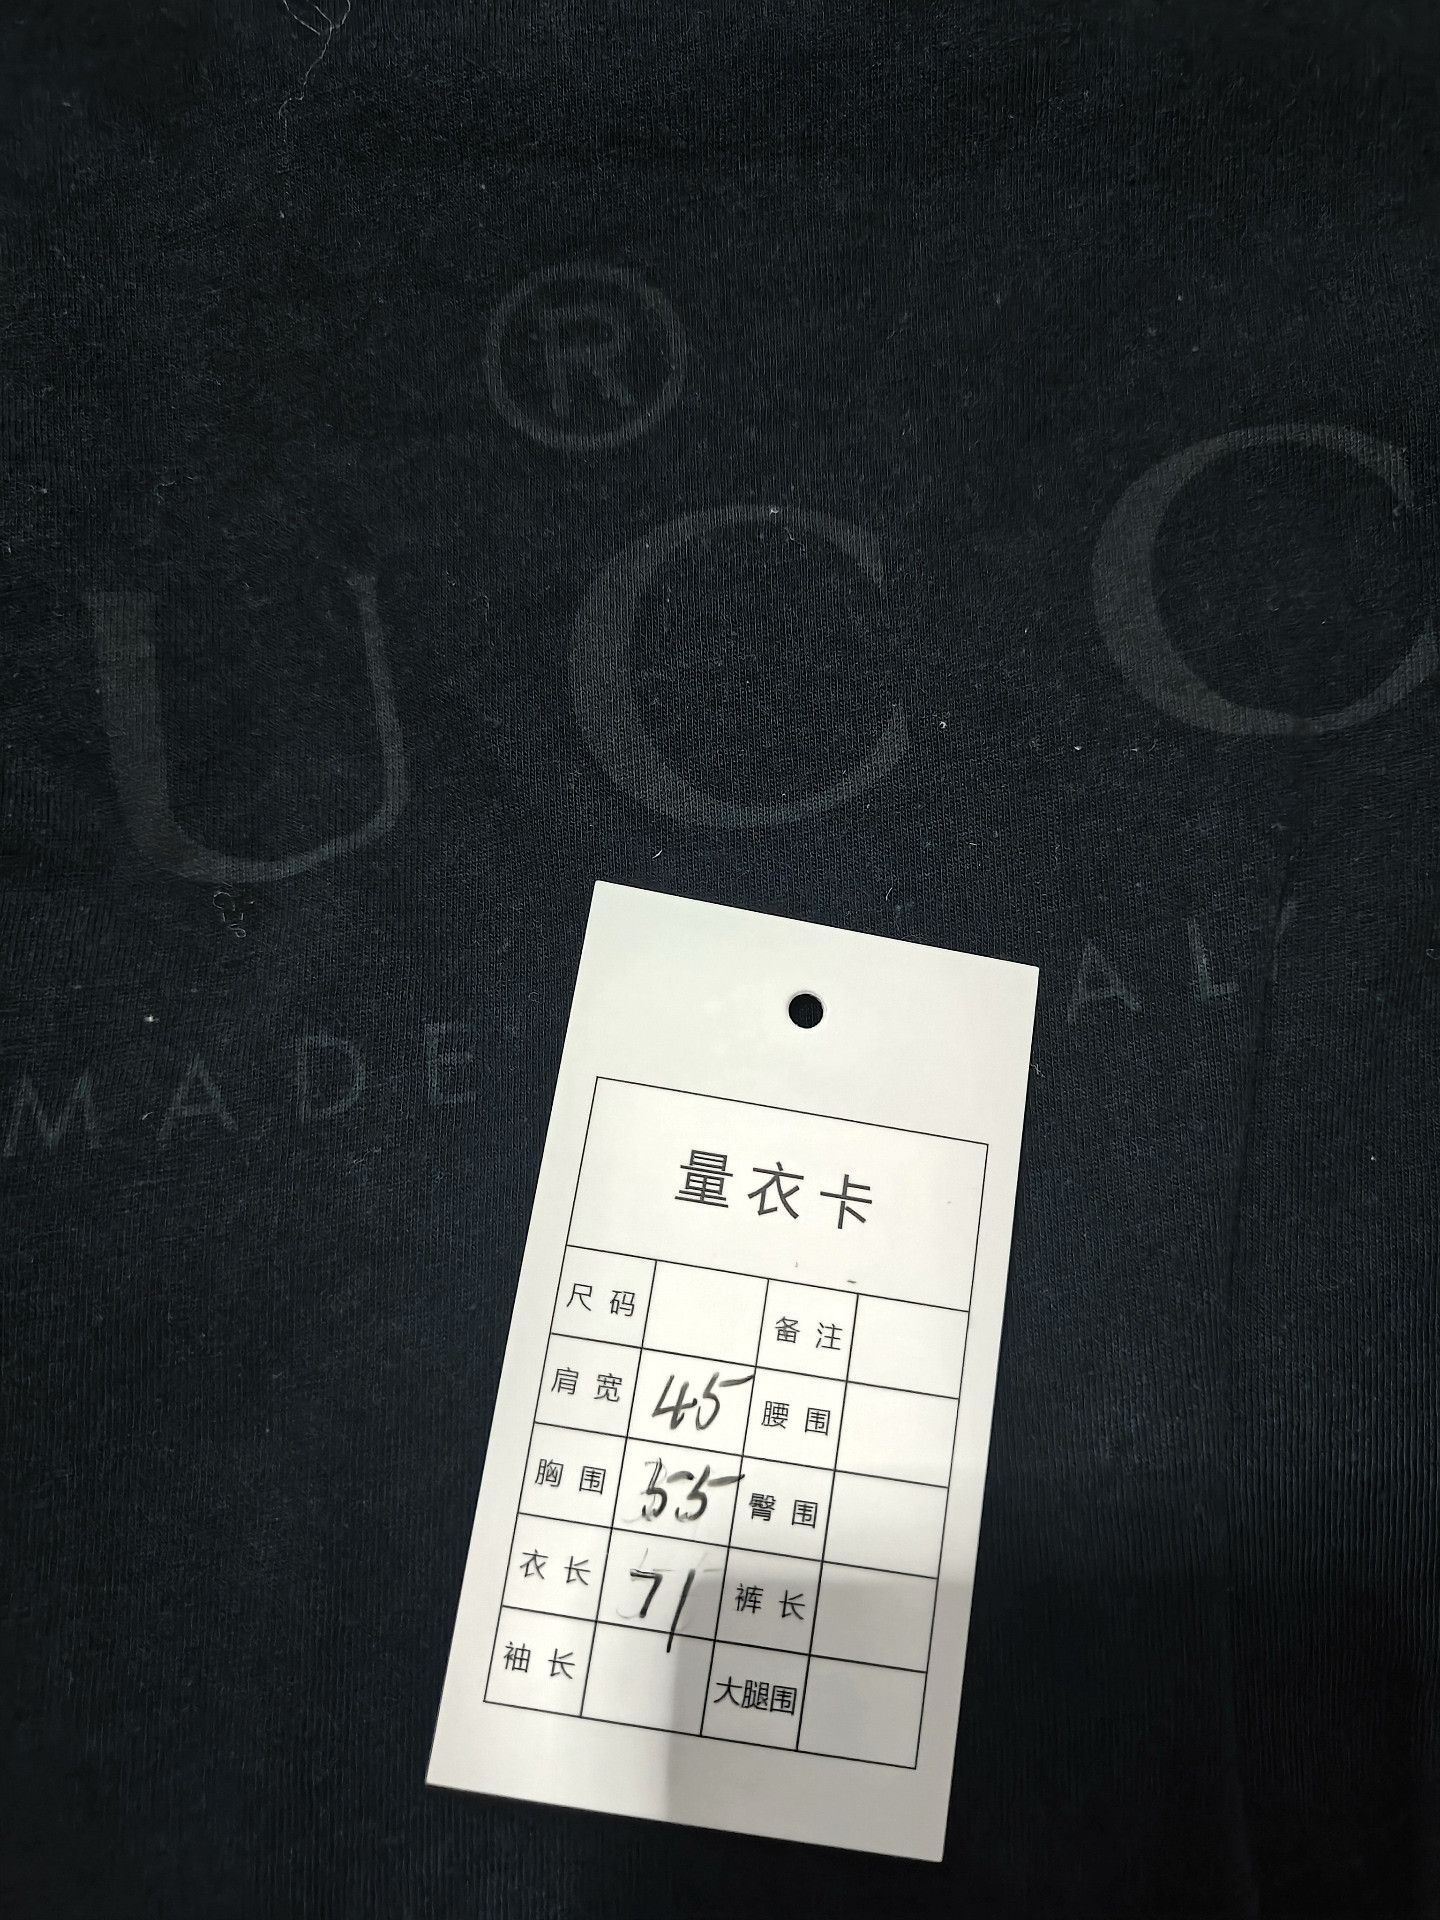 ®
UCC
MADE
AL
量衣卡
尺码 备注
肩宽 45 腰围
胸围 55 臀围
衣长 71 裤长
袖长 大腿围